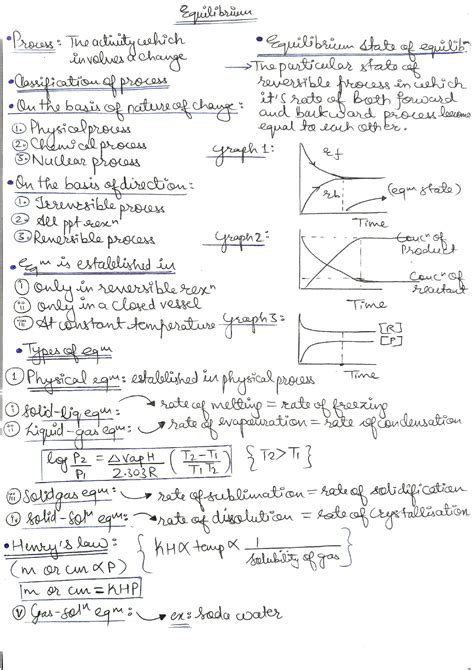 Equilibrium
• Process: The activity which
involves a change
• Classification of process
• On the basis of nature of change:
1. Physical process
2. Chemical process
3. Nuclear process
• On the basis of direction:
1. Irreversible process
2. All ppt rexⁿ
3. Reversible process
• Eqᵐ is established in
i only in reversible rexⁿ
ii only in a closed vessel
iii At constant temperature
• Equilibrium State of equilibⁿ
→ The particular state of
reversible process in which
it's rate of both forward
and backward process become
equal to each other.
Graph 1:
rf
rb
(eqm state)
Time
Graph 2:
Concⁿ of
Product
Concⁿ of
reactant
Time
Graph 3:
[R]
[P]
Time
• Types of eqm
1 Physical eqm: established in physical process
i Solid-liq eqm: → rate of melting = rate of freezing
ii Liquid-gas eqm: → rate of evapouration = rate of condensation
log P2/P1 = ΔvapH/2.303R (T2-T1/T1T2) {T2>T1}
iii Solid gas eqm: → rate of sublimation = rate of solidification
iv Solid-Solⁿ eqm: → rate of dissolution = rate of crystallisation
• Henry's law: {KH∝ temp ∝ 1/solubility of gas}
(m or cm ∝ P)
m or cm = KHP
v Gas-solⁿ eqm: → ex: soda water